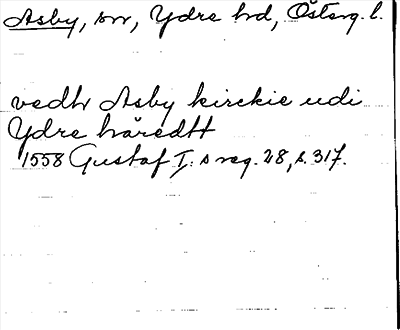 Asby, sn, Ydre hd, Österg. l.
vedh Asby kirckie udi
Ydre häredtt
1558 Gustaf I:s reg. 28, s. 317.